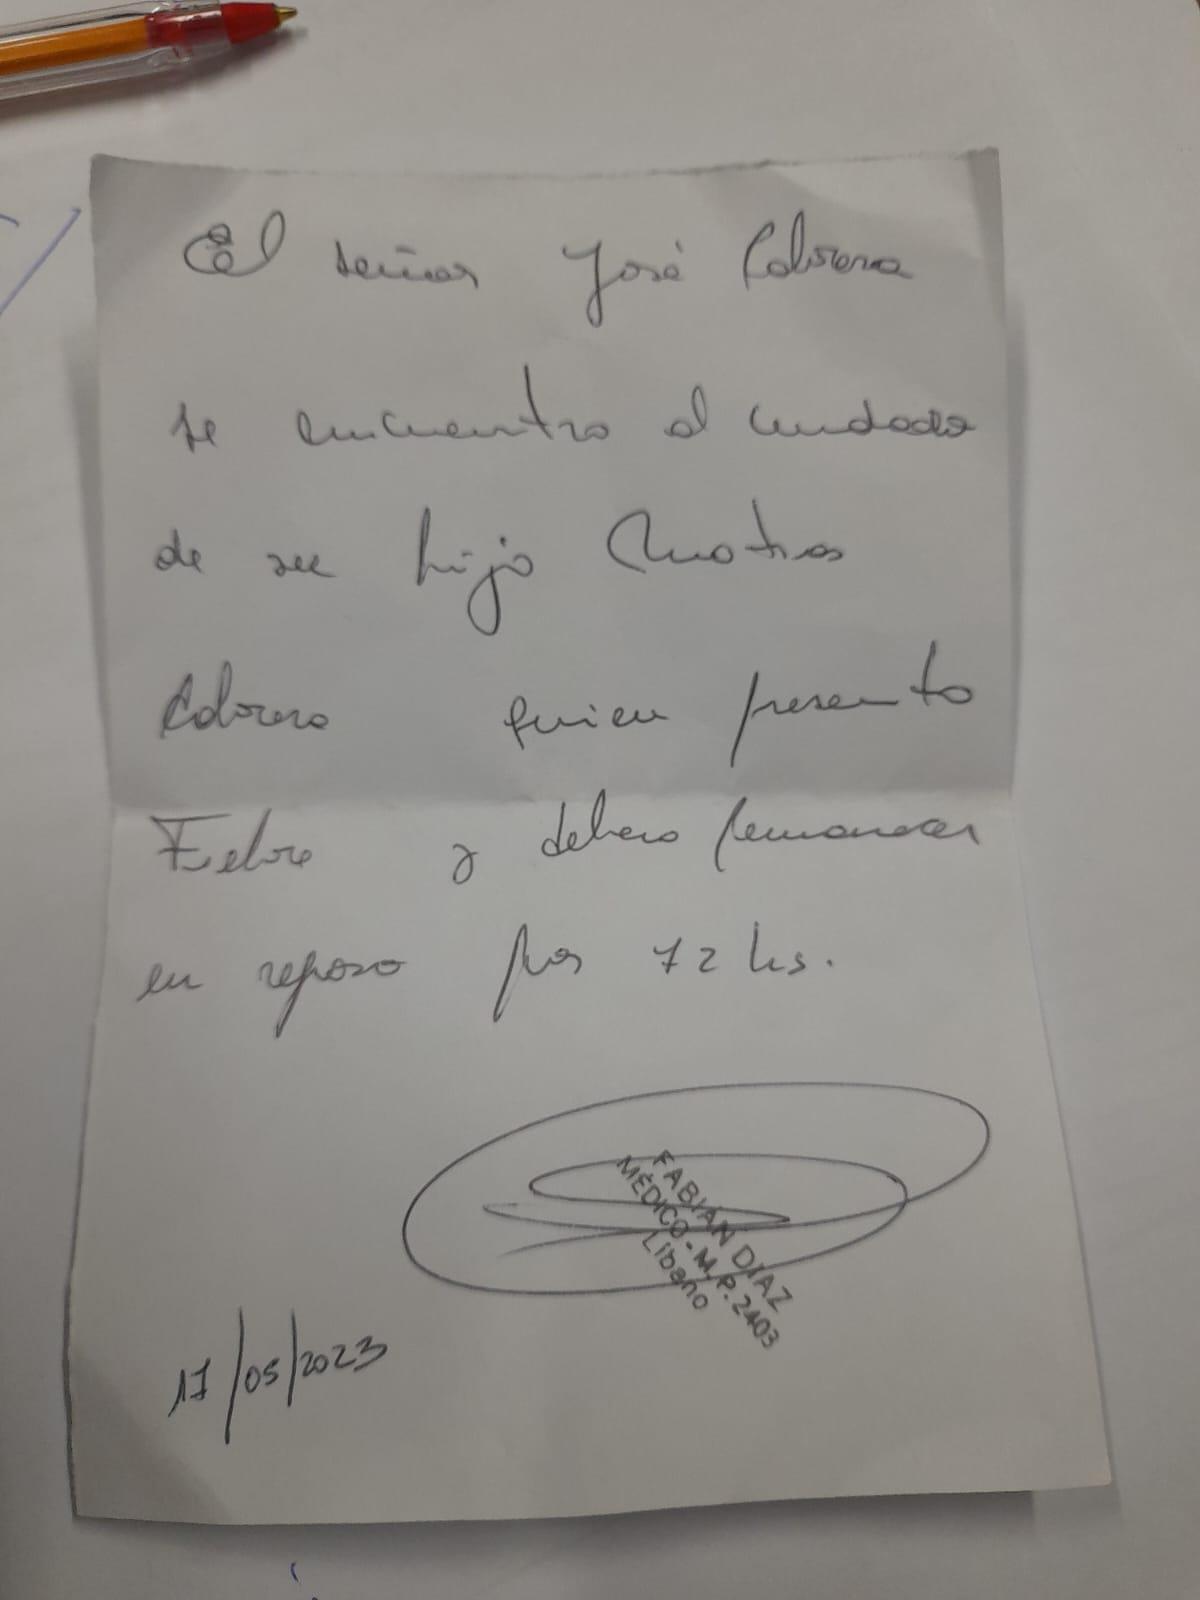 El señor José Cabrera
se encuentra al cuidado
de su hijo Matias
Cabrera quien presento
Febre y debera permanecer
en reposo por 72 hs.
FABIAN DIAZ
MÉDICO - M.P. 2403
Libano
17/05/2023